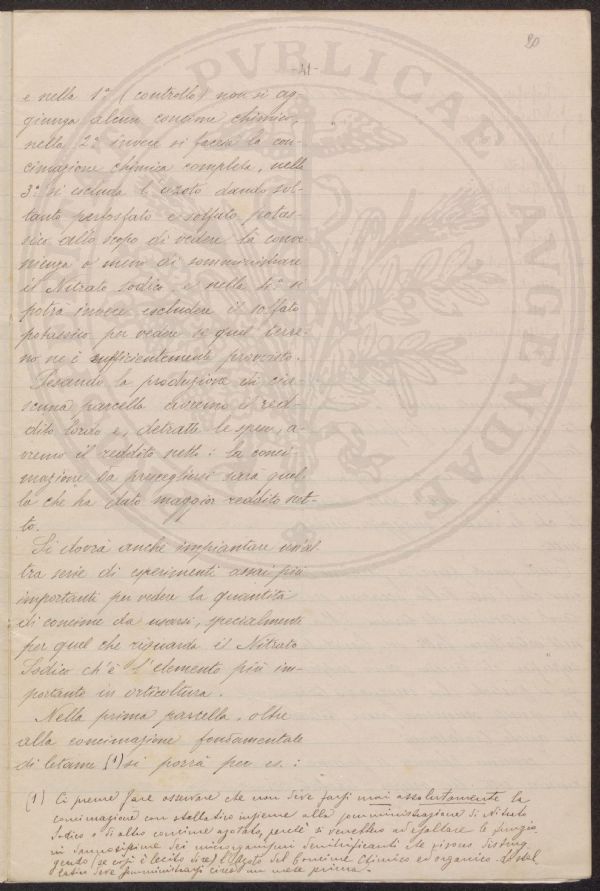 20
-41-
e nella 1ª (controllo) non si ag-
giunga alcun concime chimico,
nella 2ª invece si faccia la con-
cimazione chimica completa, nella
3ª si escluda l'azoto dando sol-
tanto perfosfato e solfato potas-
sico allo scopo di vedere la conve-
nienza o meno di somministrare
il Nitrato Sodico, e nella 4ª si
potrà invece escludere il solfato
potassico per vedere se quel terre-
no ne è sufficientemente provvisto.
Pesando la produzione di cia-
scuna parcella avremo il red-
dito lordo e, detratte le spese, a-
vremo il reddito netto: la conci-
mazione da prescegliersi sarà quel-
la che ha dato maggior reddito net-
to.
Si dovrà anche impiantare un'al
tra serie di esperimenti assai più
importanti per vedere la quantità
di concime da usarsi, specialmente
per quel che riguarda il Nitrato
Sodico ch'è l'elemento più im-
portante in orticoltura.
Nella prima parcella, oltre
alla concimazione fondamentale
di letame (1) si porrà per es.:
(1) Ci preme fare osservare che non deve farsi mai assolutamente la
concimazione con stallatico insieme alla somministrazione di Nitrato
Sodico o di altro concime azotato, perchè si verrebbe ad esaltare le funzio
ni dei microrganismi denitrificanti che
(se così è lecito dire) l'Azoto del Concime Chimico ed organico. Lo stal
latico deve somministrarsi circa un mese prima.
PVBLICAE
AVGENDAE